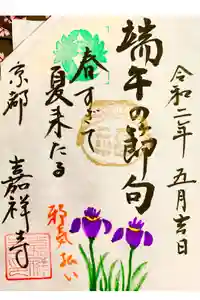 令和二年 五月吉日
端午の節句
春すぎて
夏来たる
京都 嘉祥寺
邪気払い